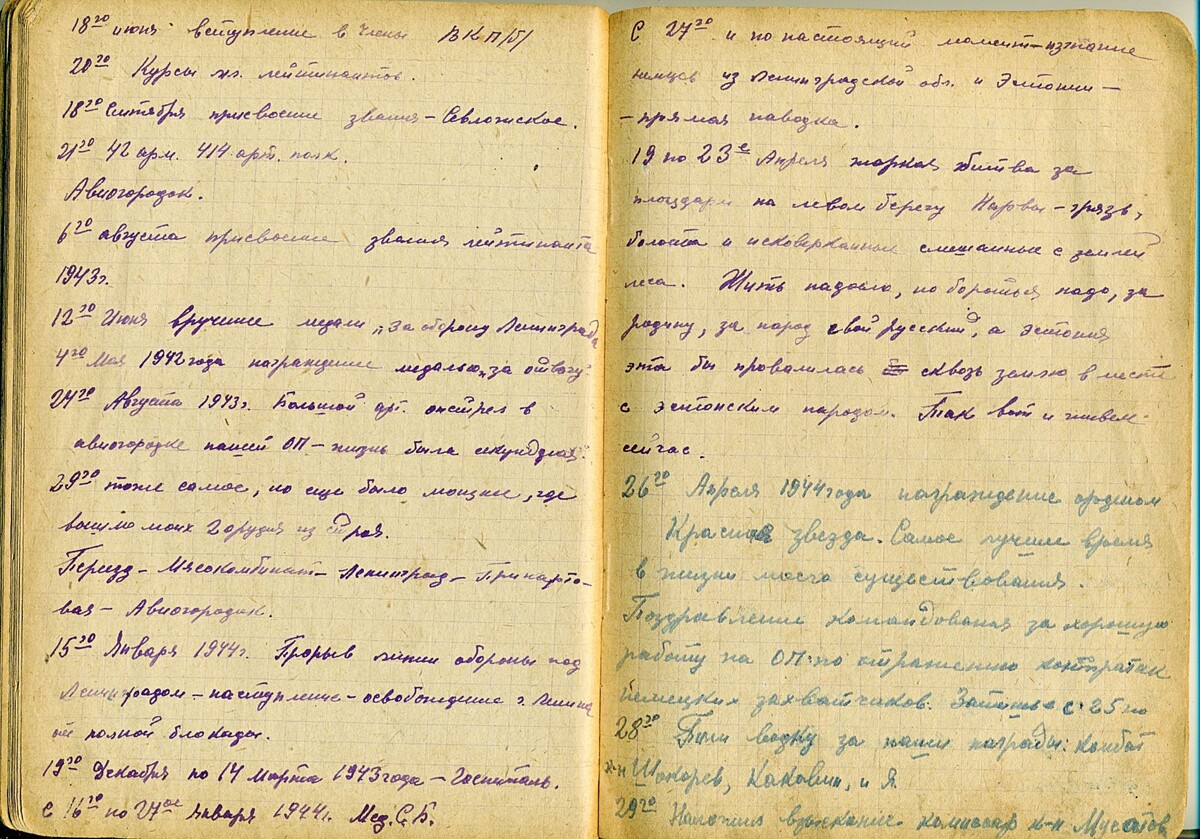 18го июня вступление в члены ВКП/б/
20го Курсы мл. лейтинантов.
18го Сентября присвоение звания – Севложское.
21го 42 арм. 414 арт. полк.
Авиогородок.
6го августа присвоение звания лейтинанта
1943г.
12го Июня вручение медали „За оборону Ленинграда
4го Мая 1942 года награждение медалью „за отвагу"
24го Августа 1943г. Большой арт. обстрел в
авиогородке нашей ОП – жизнь была секундная.
29го тоже самое, но еще было мощнее, где
вышло моих 2 орудия из строя.
Переезд – Мясокомбинат – Ленинград –
вая – Авиогородок.
15го Января 1944г. Прорыв линии обороны под
Ленинградом – наступление – освобождение г. Ленина
от полной блокады.
19го Декабря по 14 Марта 1943 года – Госпиталь.
С 16го по 27ое Января 1944г. Мед. С. Б.
С 27го и по настоящий момент – изгнание
немцев из Ленинградской обл. и Эстонии –
– прямая наводка.
19 по 23е Апреля жаркая битва за
плацдарм на левом берегу Нарвы – грязь,
болота и исковерканные смешанные с землей
леса. Жить надоело, но бороться надо, за
родину, за народ свой русский, а эстония
эта бы провалилась сквозь землю вместе
с эстонским народом. Так вот и живем
сейчас.
26го Апреля 1944 года награждение орденом
Красная звезда. Самое лучшее время
в жизни моего существования.
Поздравление командования за хорошую
работу на ОП: по отражению контратак
немецких захватчиков. Затишье с 25 по
28го Пили водку за наши награды: комбат
к-н Шокорев, Каковин, и Я.
29го Наложил взыскание комиссар к-н Мусатов